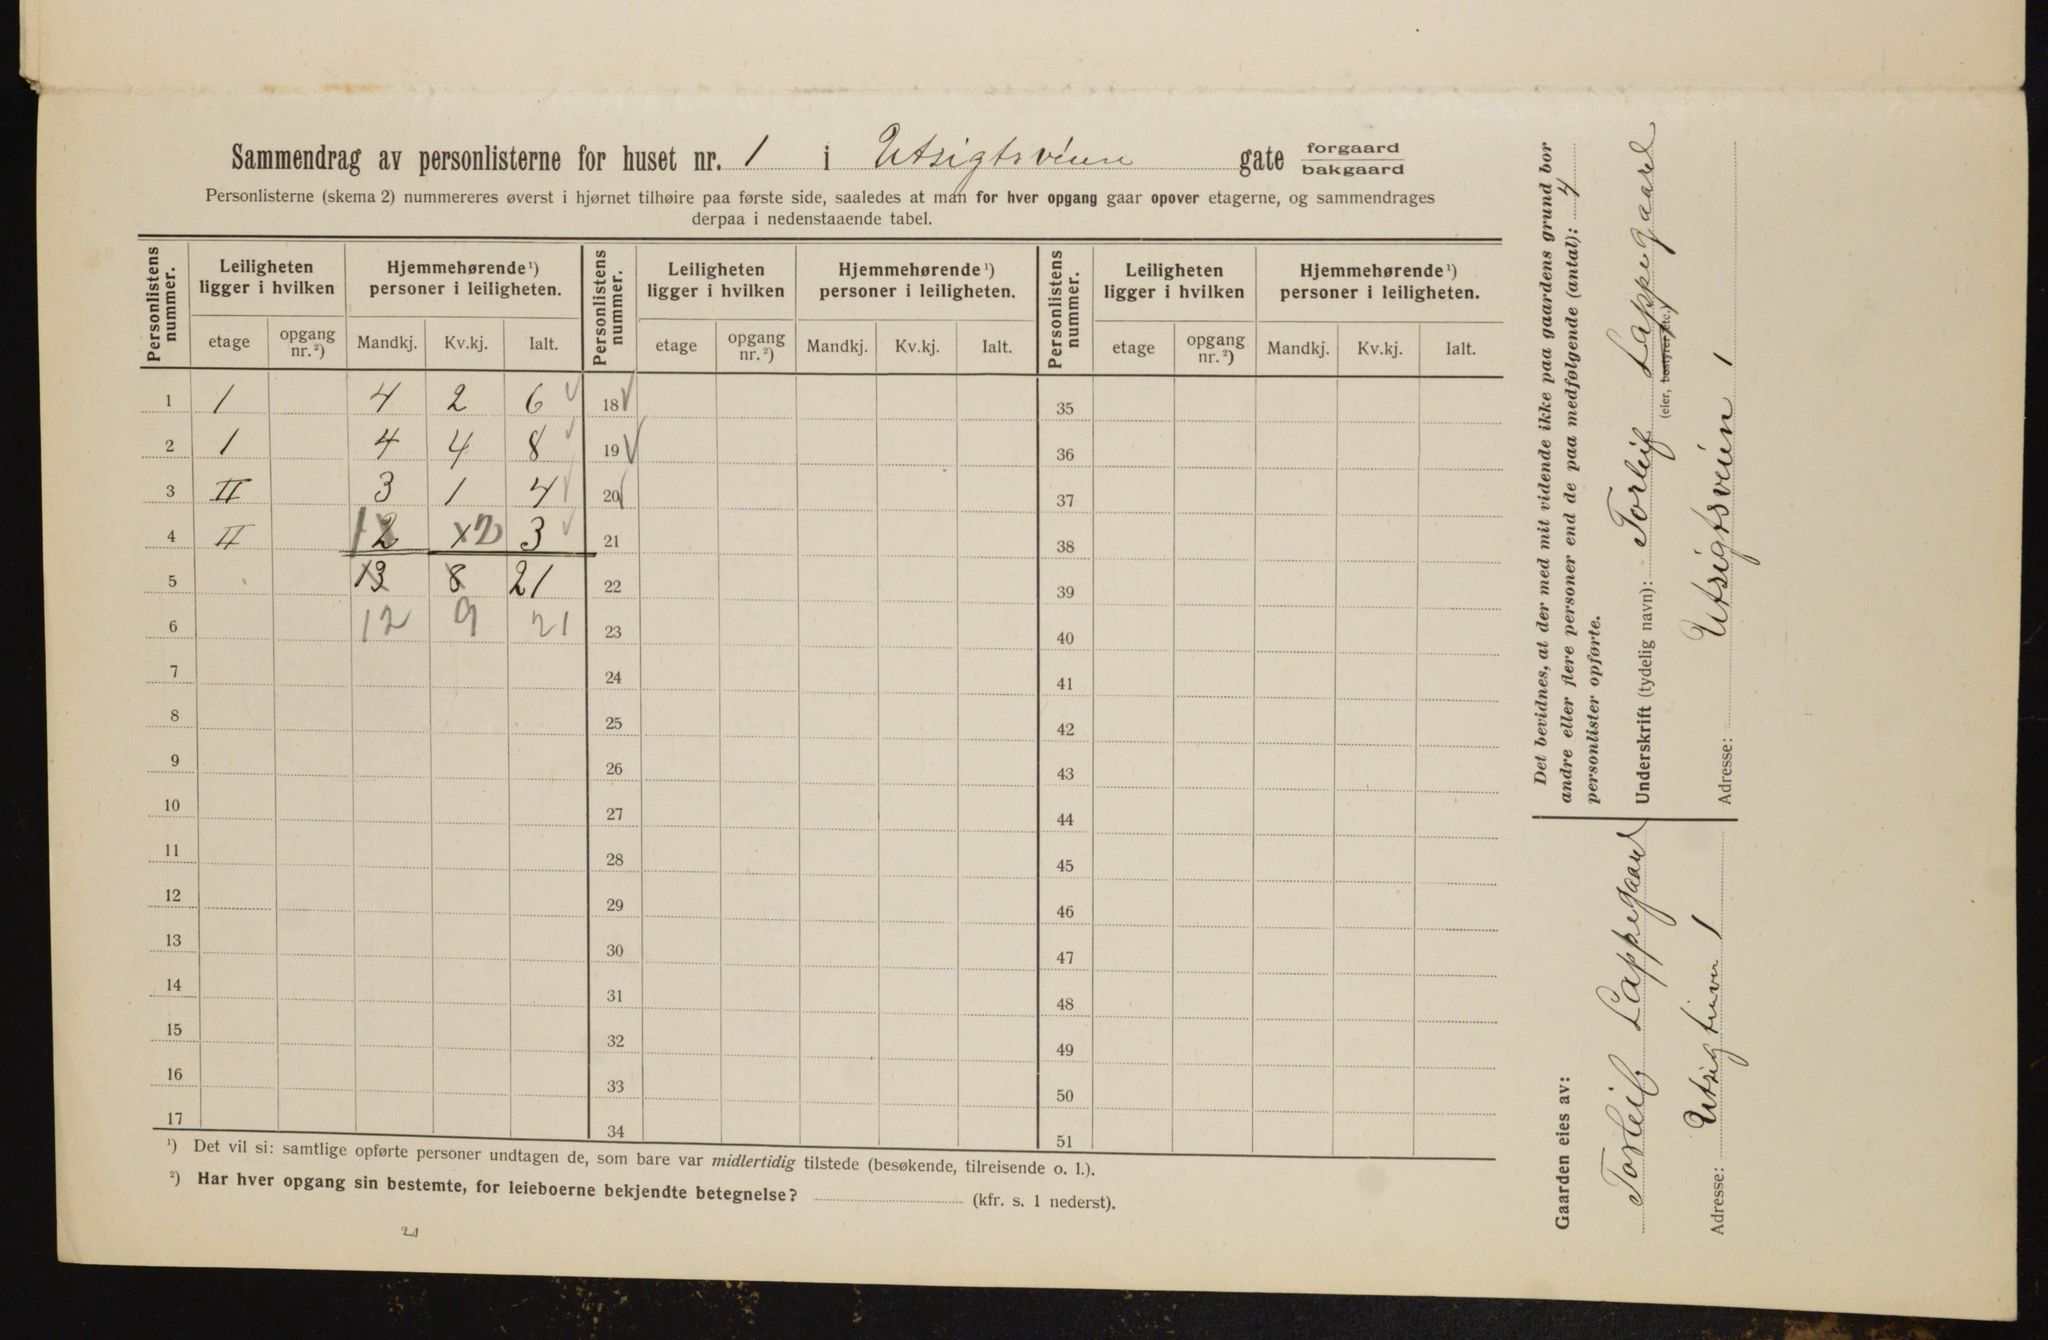 Sammendrag av personlisterne for huset nr. 1 i Utsigtsveien gate forgaard / bakgaard
Personlisterne (skema 2) nummereres øverst i hjørnet tilhøire paa første side, saaledes at man for hver opgang gaar opover etagerne, og sammendrages
derpaa i nedenstaaende tabel.
Personlistens nummer. Leiligheten ligger i hvilken Hjemmehørende¹) personer i leiligheten. Personlistens nummer. Leiligheten ligger i hvilken Hjemmehørende¹) personer i leiligheten. Personlistens nummer. Leiligheten ligger i hvilken Hjemmehørende¹) personer i leiligheten.
etage opgang nr.²) Mandkj. Kv.kj. Ialt. etage opgang nr.²) Mandkj. Kv.kj. Ialt. etage opgang nr.²) Mandkj. Kv.kj. Ialt.
1 1 4 2 6 18 35
2 1 4 4 8 19 36
3 II 3 1 4 20 37
4 II 1 2 2 3 21 38
5 13 8 21 22 39
6 12 9 21 23 40
7 24 41
8 25 42
9 26 43
10 27 44
11 28 45
12 29 46
13 30 47
14 31 48
15 32 49
16 33 50
17 34 51
¹) Det vil si: samtlige opførte personer undtagen de, som bare var midlertidig tilstede (besøkende, tilreisende o. l.).
²) Har hver opgang sin bestemte, for leieboerne bekjendte betegnelse? (kfr. s. 1 nederst).
21
Det bevidnes, at der med mit vidende ikke paa gaardens grund bor
andre eller flere personer end de paa medfølgende (antal): 4
personlister opførte.
Underskrift (tydelig navn): Torleif Lappegaard
(eier, bestyrer etc.)
Adresse: Utsigtsveien 1
Gaarden eies av:
Torleif Lappegaard
Adresse: Utsigtsveien 1